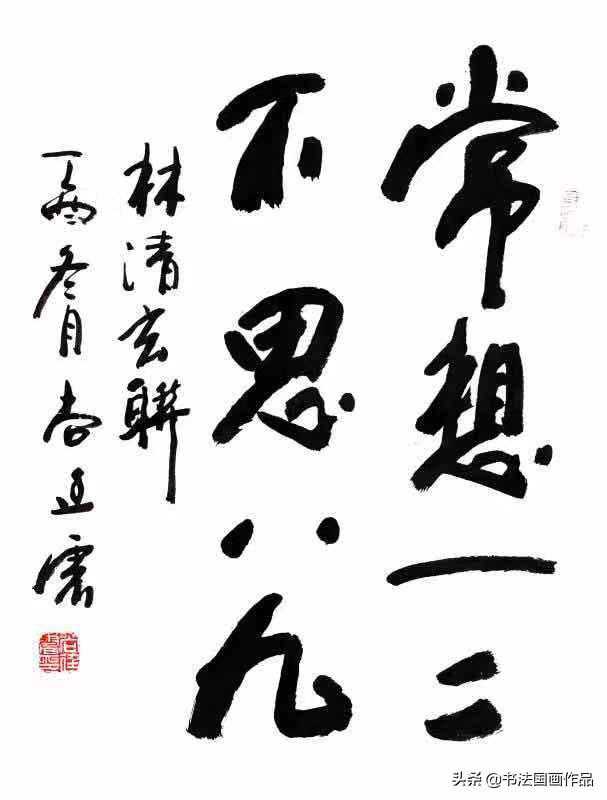 常想一二
不思八九
林清玄聯
丁酉冬月
头条 @书法国画作品